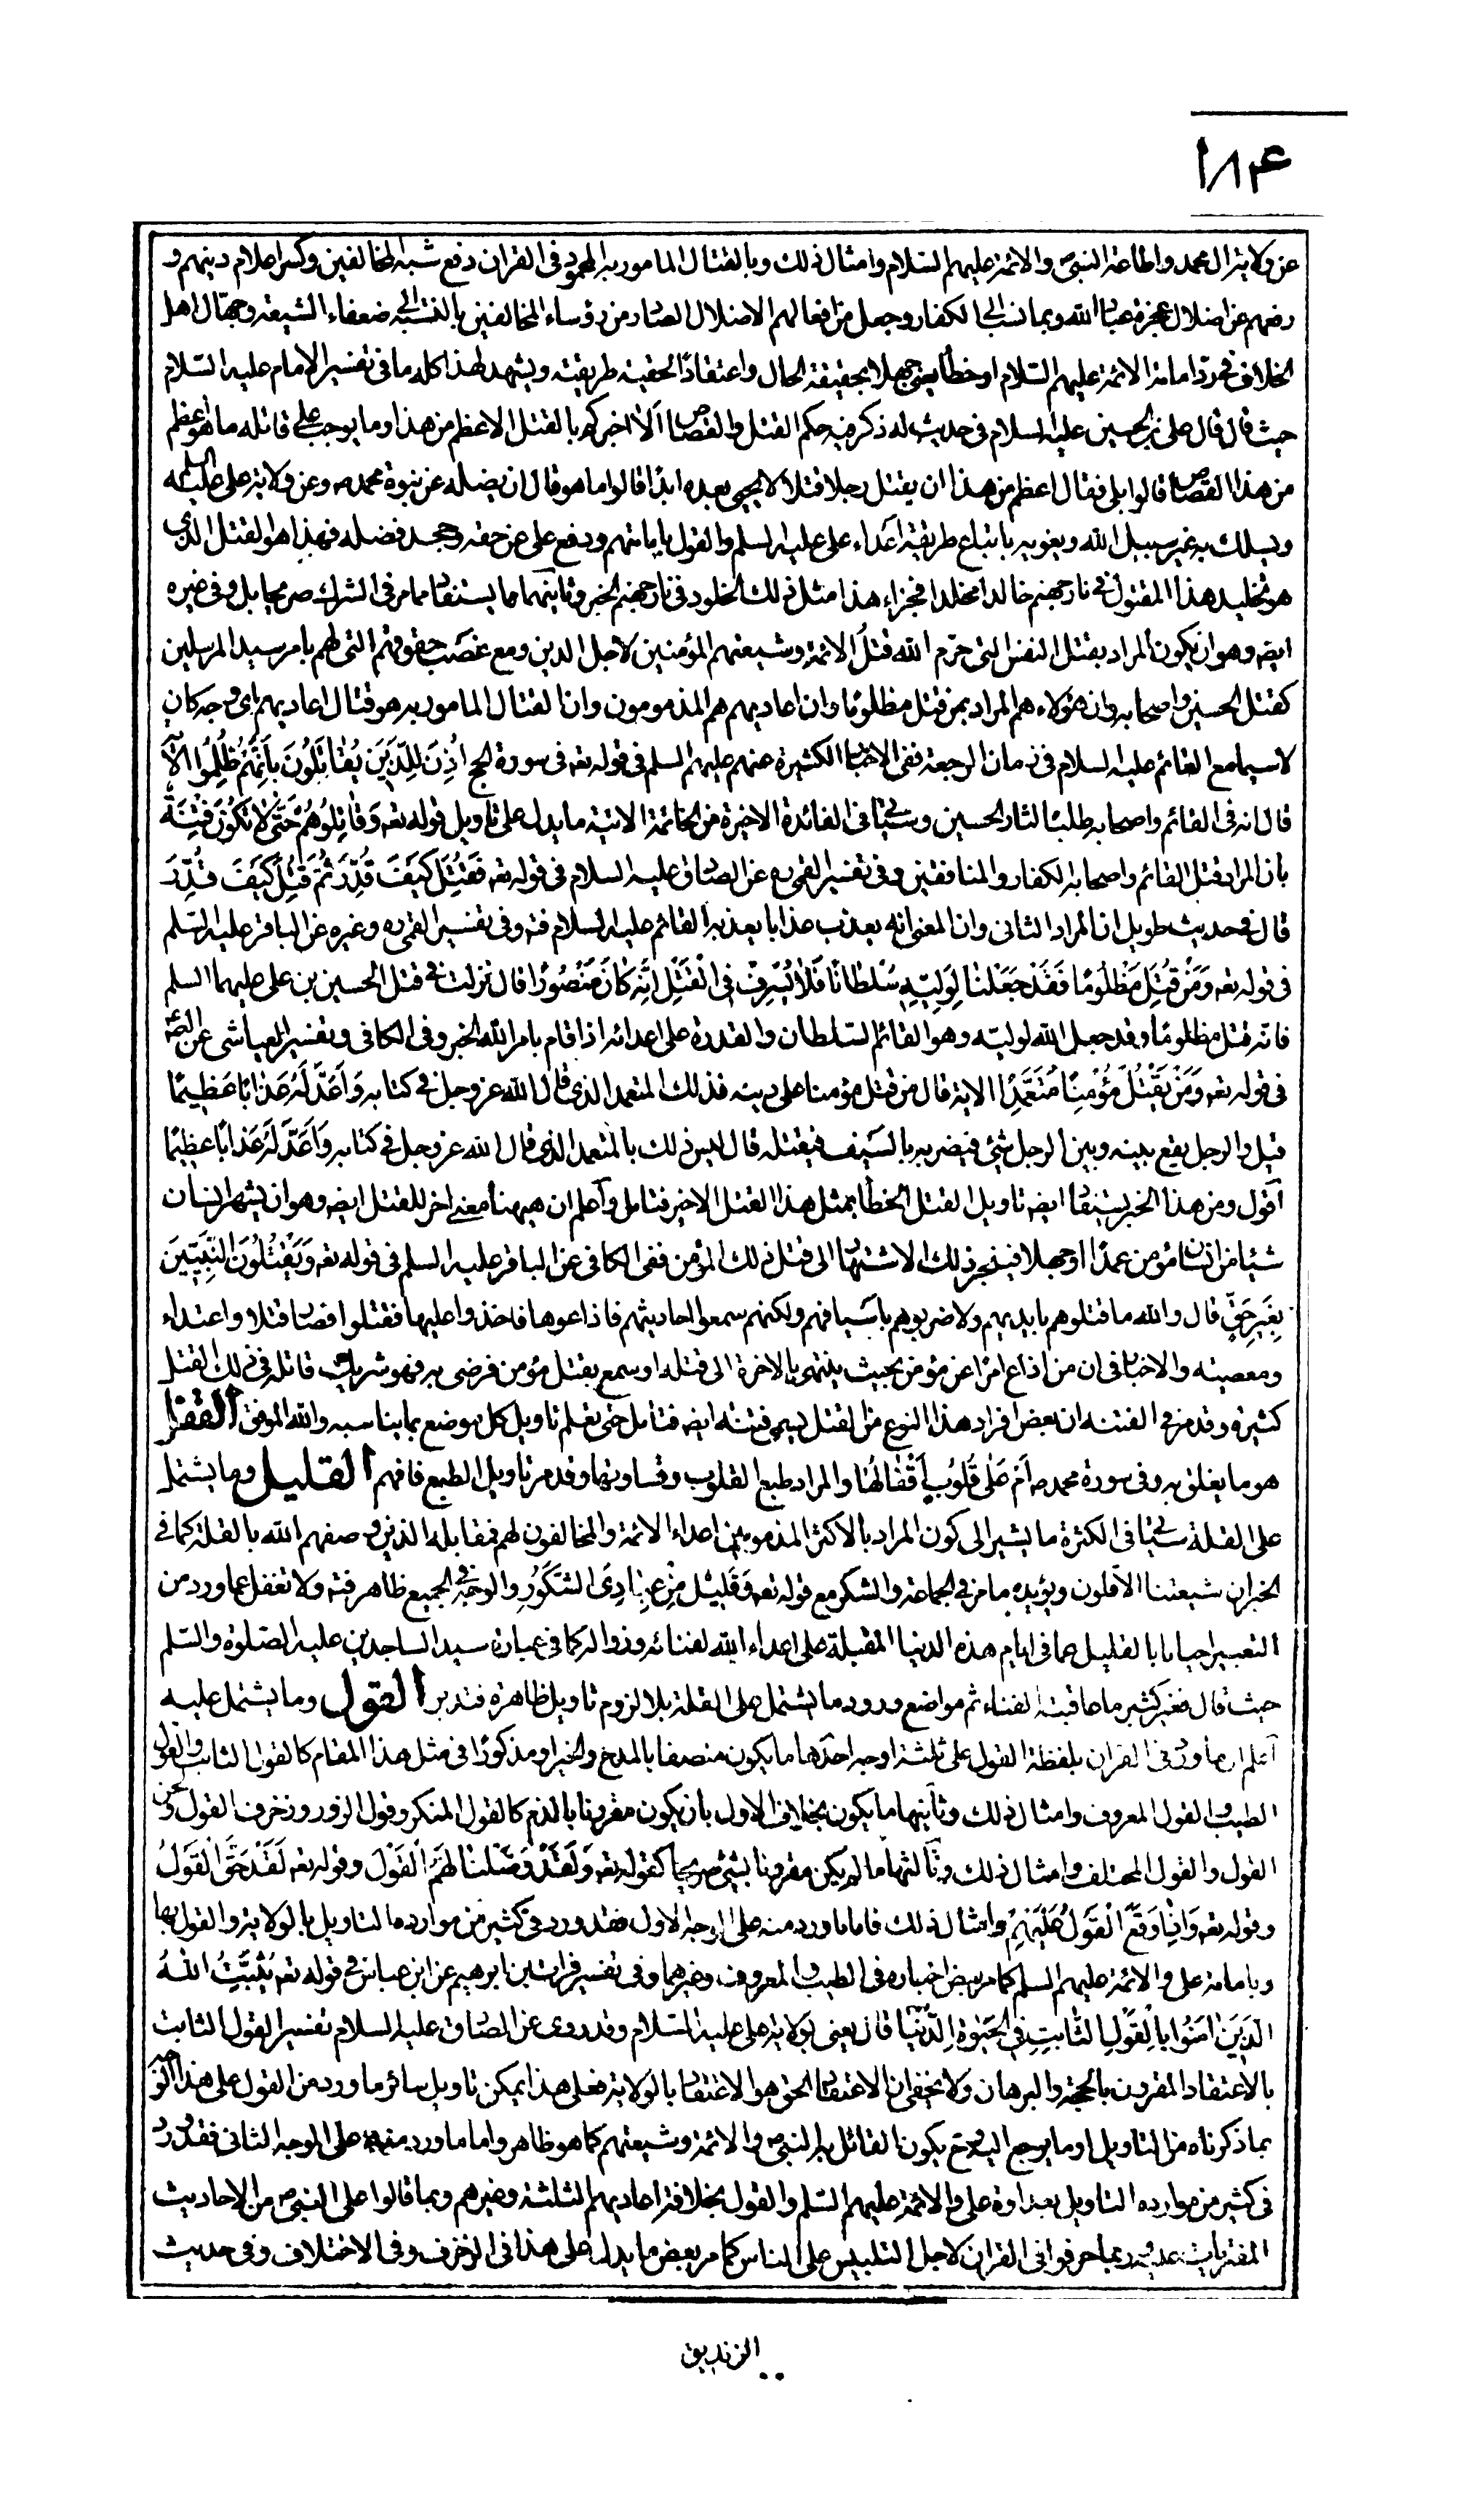 ١٨۴
عن ولاية ال محمد واطاعة النبىّ والائمة عليهم السّلام وامثال ذلك وبالقتال المامور به المحمود فى القران دفع شبه المخالفين وكسر اعلام دينهم و
ردّهم عن اضلال عجزة عباد الله وبما نسب الى الكفار وجعل من افعالهم الاضلال الصّادر من رؤساء المخالفين بالنّسبة الى ضعفاء الشيعة وجهّال اهل
الخلاف فى ردّ امامة الائمة عليهم السّلام او خطأ يعنى جهلا بحقيقة الحال واعتقادًا لحقية طريقته ويشهد لهذا كله ما فى تفسير الامام عليه السّلام
حيث قال قال على بن الحسين عليه السلام فى حديث له ذكر فيه حكم القتل والقصاص ألا اخبركم بالقتل الاعظم من هذا وما يوجب على قاتله ما هو اعظم
من هذا القصاص قالوا بلى فقال اعظم من هذا ان يقتل رجلا قتلا لا يجيى بعده ابدًا قالوا ما هو قال ان يضله عن نبوة محمد ص وعن ولاية على عليه السلم
ويسلك به غير سبيل الله ويغويه باتباع طريقة اعداء على عليه السلم والقول بامامتهم ودفع على عن حقه وجحد فضله فهذا هو القتل الذى
هو تخليد هذا المقتول فى نار جهنم خالدا مخلدا فجزاء هذا مثل ذلك الخلود فى نار جهنم الخبر وثانيهما ما يستفاد مما مر فى الشرك صريحا بل وفى غيره
ايضه وهو ان يكون المراد بقتل النفس التى حرّم الله قتل الائمة وشيعتهم المؤمنين لاجل الدين ومع غصب حقوقهم التى لهم بامر سيد المرسلين
كقتل الحسين واصحابه وان هؤلاء هم المراد بمن قتل مظلومًا وان اعاديهم هم المذمومون وان القتال المامور به هو قتال اعاديهم باى وجه كان
لا سيما مع القائم عليه السلام فى زمان الرجعة ففى الاخبار الكثيرة عنهم عليهم السلم فى قوله تعه فى سورة الحج اُذِنَ لِلَّذِينَ يُقَاتَلُونَ بِاَنَّهُمْ ظُلِمُوا الآية
قال انه فى القائم واصحابه طلبًا لثار الحسين وسياتى فى الفائدة الاخيرة من الخاتمة الاتية ما يدل على تاويل قوله تعه وَقَاتِلُوهُمْ حَتَّى لَا تَكُونَ فِتْنَةٌ
بان المراد قتل القائم واصحابه الكفار والمنافقين وفى تفسير القمى ره عن الصادق عليه السلام فى قوله تعه فَقُتِلَ كَيْفَ قَدَّرَ ثُمَّ قُتِلَ كَيْفَ قَدَّرَ
قال فى حديث طويل ان المراد الثانى وان المعنى انه يعذب عذابا بعد عذاب يعذبه القائم عليه السلام فته وفى تفسير القمى ره وغيره عن الباقر عليه السّلم
فى قوله تعه وَمَنْ قُتِلَ مَظْلُومًا فَقَدْ جَعَلْنَا لِوَلِيِّهِ سُلْطَانًا فَلَا يُسْرِفْ فِى الْقَتْلِ اِنَّهُ كَانَ مَنْصُورًا قال نزلت فى قتل الحسين بن على عليهما السلم
فانه قتل مظلومًا وقد جعل الله لوليّه وهو القائم السّلطان والقدرة على اعدائه اذا قام بامر اللّه الخبر وفى الكافى وتفسير العياشى عن الصّه
فى قوله تعه وَمَنْ يَقْتُلْ مُؤْمِنًا مُتَعَمِّدًا الاية قال من قتل مؤمنا على دينه فذلك المتعمد الذى قال الله عز وجل فى كتابه وَاَعَدَّ لَهُ عَذَابًا عَظِيمًا
قيل والرجل يقع بينه وبين الرجل شئى فيضربه بالسّيف فيقتله قال ليس ذلك بالمتعمد الذى قال الله عز وجل فى كتابه وَاَعَدَّ لَهُ عَذَابًا عَظِيمًا
اَقول ومن هذا الخبر يستفاد ايضه تاويل القتل الخطأ بمثل هذا القتل الاخير فتامل واَعلم ان هيهنا معنى اخر للقتل ايضه وهو ان يشهر انسان
شيئا من انسان مؤمن عمدًا او جهلا فينجر ذلك الاشتهار الى قتل ذلك المؤمن ففى الكافى عن الباقر عليه السلم فى قوله تعه وَيَقْتُلُونَ النَّبِيِّينَ
بِغَيْرِ حَقٍّ قال والله ما قتلوهم بايديهم ولا ضربوهم باسيافهم ولكنهم سمعوا احاديثهم فاذاعوها فاخذوا عليها فقتلوا فصار قتلا واعتداء
ومعصيته والاخبار فى ان من اذاع امرًا عن مؤمن بحيث ينتهى بالاخرة الى قتله او سمع بقتل مؤمن فرضى به فهو شريك قاتله فى ذلك القتل
كثيرة وقد مر فى الفتنة ان بعض افراد هذا النوع من القتل يسمى فتنة ايضه فتامل حتى تعلم تاويل كل موضع بما يناسبه والله الموفق القفل
هو ما يغلق به وفى سورة محمد ص اَمْ عَلَى قُلُوبٍ اَقْفَالُهَا والمراد طبع القلوب وقساوتها وقد مر تاويل الطبع فافهم القليل وما يشتمل
على القلة سياتى فى الكثرة ما يشير الى كون المراد بالاكثر المذمومين اعداء الائمة والمخالفون لهم فمقابله الذين وصفهم الله بالقلة كما فى
الخبر ان شيعتنا الاقلون ويؤيده ما مر فى الجماعة والشكر مع قوله تعه وَقَلِيلٌ مِنْ عِبَادِىَ الشَّكُورُ والوجه فى الجميع ظاهر فته ولا تغفل عما ورد من
التعبير احيانا بالقليل عما فى ايام هذه الدنيا المقبلة على اعداء الله لفنائه وزواله كما فى عبارة سيد الساجدين عليه الصّلوة والسّلم
حيث قال فغير كثير ما عاقبته الفناء ثم مواضع ورود ما يشتمل على القلة بلا لزوم تاويل ظاهرة فتدبر القول وما يشتمل عليه
اَعلم ان ما ورد فى القران بلفظة القول على ثلثة اوجه احدها ما يكون متصفا بالمدح والخير او مذكورًا فى مثل هذا المقام كالقول الثابت والقول
الطيب والقول المعروف وامثال ذلك وثانيها ما يكون بخلاف الاول بان يكون مقرونا بالذم كالقول المنكر وقول الزور وزخرف القول ولحن
القول والقول المختلف وامثال ذلك وثالثها ما لم يكن مقرونا بشئ صريحا كقوله تعه وَلَقَدْ وَصَّلْنَا لَهُمُ الْقَوْلَ وقوله تعه لَقَدْ حَقَّ الْقَوْلُ
وقوله تعه وَاِذَا وَقَعَ الْقَوْلُ عَلَيْهِمْ وامثال ذلك فاما ما ورد منه على الوجه الاول فقد ورد فى كثير من موارده التاويل بالولاية والقول بها
وبامامة على والائمة عليهم السلم كما مر بعض اخباره فى الطيب والمعروف وغيرهما وفى تفسير فرات بن ابرهيم عن ابن عباس فى قوله تعه يُثَبِّتُ اللّٰهُ
الَّذِينَ اٰمَنُوا بِالْقَوْلِ الثَّابِتِ فِى الْحَيٰوةِ الدُّنْيَا قال يعنى بولاية على عليه السّلام وقد روى عن الصّادق عليه السلام تفسير القول الثابت
بالاعتقاد المقرون بالحجة والبرهان ولا يخفى ان الاعتقاد الحق هو الاعتقاد بالولاية فعلى هذا يمكن تاويل سائر ما ورد من القول على هذا الوجه
بما ذكرناه من التاويل او ما يرجع اليه وح يكون القائل به النبى ص والائمة وشيعتهم كما هو ظاهر واما ما ورد منه على الوجه الثانى فقد ورد
فى كثير من موارده التاويل بعداوة على والائمة عليهم السّلم والقول بخلافة اعاديهم الثلثة وغيرهم وبما قالوا على النبى ص من الاحاديث
المفتريات عليه وبما حرفوا فى القران لاجل التلبيس على الناس كما مر بعض ما يدل على هذا فى الزخرف وفى الاختلاف وفى حديث
الزنديق